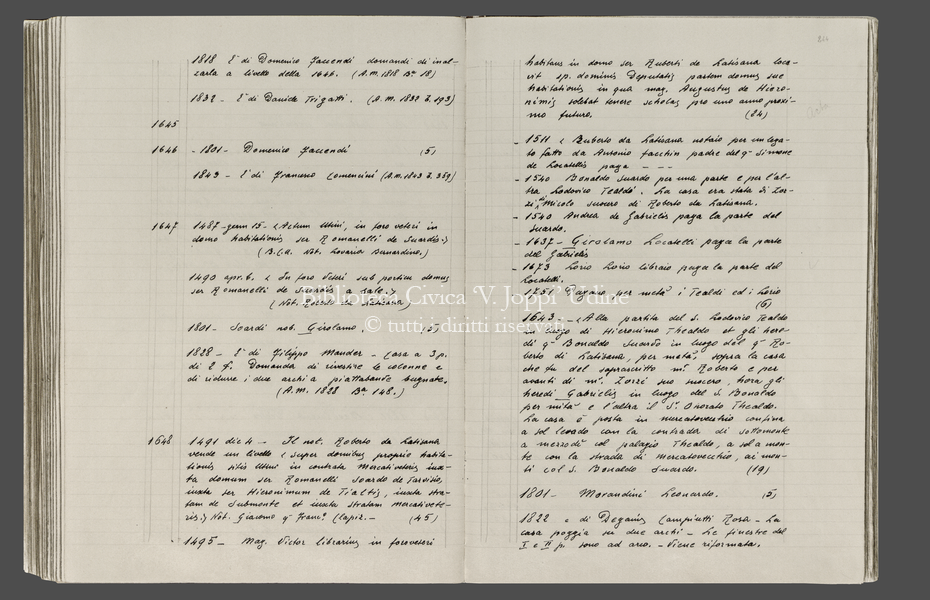 1818 È di Domenico Jaccendi domandi di inal-
carla a livello della 1646. (A.m. 1818 Bª 18)
1832 - È di Daniele Trigatti. (A.m. 1832 3. 193)
1645
1646 - 1801 - Domenico Jaccendi (5)
1843 - È di Francesco Comencini (A.m. 1843 3. 359)
1647 1487 - genn 15 - < Actum Utini, in foro veteri in
domo habitationis ser Romanelli de Suardis. >
(B.C.U. Not. Lovaria Bernardino.)
1490 apr. 6. < In foro Veteri sub porticu domus
ser Romanelli de Suardis a sale. >
(Not. Roberto da Latisana)
1801 - Soardi nob. Girolamo. (5)
1828 - È di Filippo Mander - casa a 3 p.
di 2 f. Domanda di rivestire le colonne e
di ridurre i due archi a piattabande bugnate.
(A.m. 1828 Bª 148.)
1648 1491 dic 4 - Il not. Roberto da Latisana
vende un livello < super domibus proprio habita-
tionis sitis Utini in contrata Mercativeteris iux-
ta domum ser Romanelli Soardo de Tarvisio,
iuxta ser Hieronimum de Tialtis, iuxta stra-
tam de Submonte et iuxta stratam Mercativete-
ris. > Not. Giacomo qᵐ Franc.º Clapiz. - (45)
1495 - Mag. Victor librarius in foroveteri
habitans in domo ser Ruberti de Latisana loca-
vit sp. dominis Deputatis partem domus sue
habitationis in qua mag. Augustus de Hiero-
nimis solebat tenere scholas pro uno anno proxi-
mo futuro. (24)
- 1511 < Ruberto da Latisana notaio per un lega-
to fatto da Antonio Facchin padre del qᵐ Simone
de Locatellis paga - - -
- 1540 Bonaldo Suardo per una parte e per l'al-
tra Lodovico Tealdo. La casa era stata di Zor-
zi, di Nicolo suocero di Roberto da Latisana.
- 1540 Andrea de Gabrielis paga la parte del
Suardo.
- 1637 - Girolamo Locatelli paga la parte
del Gabrielis
- 1673 Lorio Lorio libraio paga la parte del
Locatelli.
1751 Pagano per metà i Tealdi ed i Lorio
(6)
1643 - < Alla partita del S. Lodovico Tealdo
in luogo di Hieronimo Thealdo et gli here-
di qᵐ Bonaldo Suardo in luogo del qᵐ Ro-
berto di Latisana, per metà, sopra la casa
che fu del soprascritto mʳ Roberto e per
avanti di mʳ. Zorzi suo suocero, hora gli
heredi Gabrielis in luogo del S. Bonaldo
per mità e l'altra il Sʳ. Onorato Thealdo.
La casa è posta in mercatovecchio confina
a sol levado con la contrada di sottomonte
a mezzodì col palagio Thealdo, a sol a mon-
te con la strada di Mercatovecchio, ai mon-
ti col S. Bonaldo Suardo. (19)
1801 - Morandini Leonardo. (5)
1822 e di Deganis Campiutti Rosa - La
casa poggia su due archi - Le finestre del
I e II p. sono ad arco. - Viene riformata.
Biblioteca Civica 'V. Joppi' Udine
© tutti i diritti riservati